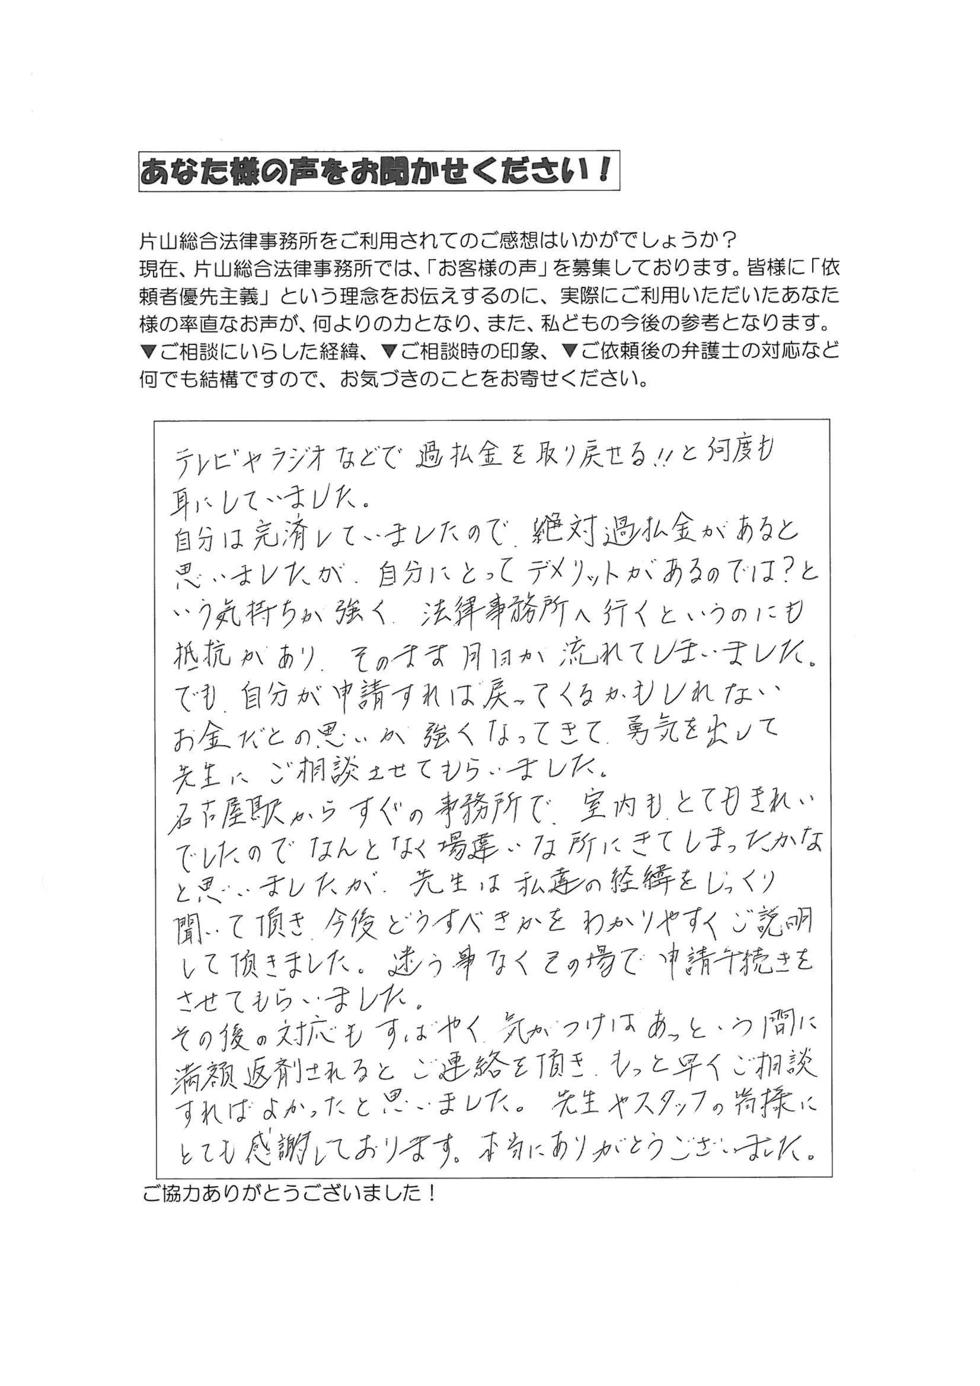 あなた様の声をお聞かせください！
片山総合法律事務所をご利用されてのご感想はいかがでしょうか？
現在、片山総合法律事務所では、「お客様の声」を募集しております。皆様に「依
頼者優先主義」という理念をお伝えするのに、実際にご利用いただいたあなた
様の率直なお声が、何よりの力となり、また、私どもの今後の参考となります。
▼ご相談にいらした経緯、▼ご相談時の印象、▼ご依頼後の弁護士の対応など
何でも結構ですので、お気づきのことをお寄せください。
テレビやラジオなどで過払金を取り戻せる!!と何度も
耳にしていました。
自分は完済していましたので、絶対過払金があると
思いましたが、自分にとってデメリットがあるのでは?と
いう気持ちが強く、法律事務所へ行くというのにも
抵抗があり、そのまま月日が流れてしまいました。
でも、自分が申請すれば戻ってくるかもしれない
お金だとの思いが強くなってきて、勇気を出して
先生にご相談させてもらいました。
名古屋駅からすぐの事務所で、室内もとてもきれい
でしたのでなんとなく場違いな所にきてしまったかな
と思いましたが、先生は私達の経緯をじっくり
聞いて頂き、今後どうすべきかをわかりやすくご説明
して頂きました。迷う事なくその場で申請手続きを
させてもらいました。
その後の対応もすばやく、気がつけばあっという間に
満額返剤されるとご連絡を頂き、もっと早くご相談
すればよかったと思いました。先生やスタッフの皆様に
とても感謝しております。本当にありがとうございました。
ご協力ありがとうございました！